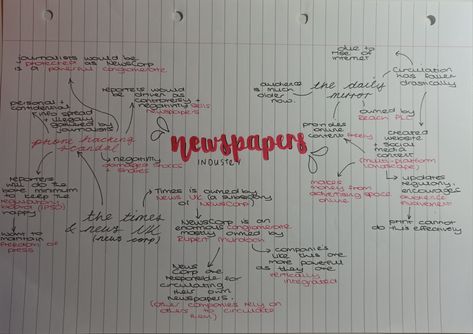 journalists would be
"protected" as NewsCorp
is a powerful conglomerate
personal +
confidential
info spread
+ illegally
gained by
journalists
reporters would be
driven as
controversy +
negativity sells
newspapers
phone hacking
scandal
negativity
damaged
shares
reporters
will do the
bare minimum
to keep the
regulators
(IPSO)
happy
want to
maintain
freedom of
press
newspapers
INDUSTRY
the times
& news UK
(news corp)
Times is owned by
News UK (a subsidary
of NewsCorp)
NewsCorp is an
enormous conglomerate
mostly owned by
Rupert Murdoch
News
Corp are
responsible for
circulating
their own
newspapers.
(other companies rely on
others to circulate
them)
companies
like this are
more powerful
as they are
vertically
integrated
the daily
mirror
audience
is much
older
now.
due to
rise of
internet
circulation
has fallen
drastically
owned by
Reach PLC
created
website +
social
media
content
(multi platform
landscape)
provides
online
content freely
makes
money from
advertising space
online
updates
regularly
encourages
audience
involvement
print cannot
do this effectively